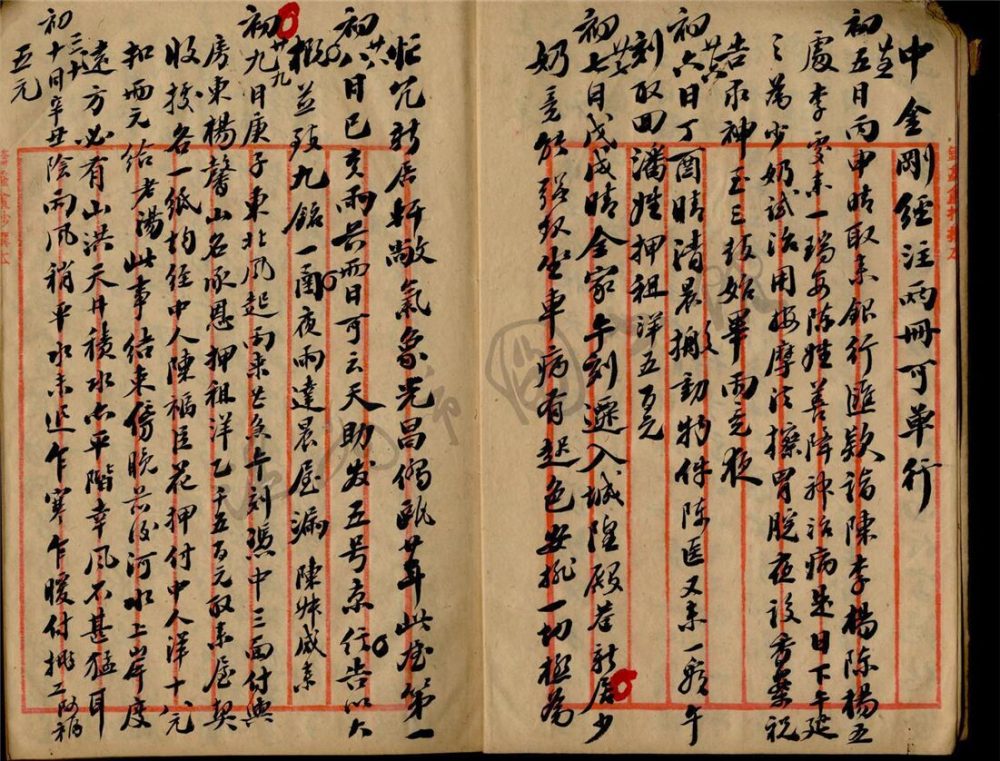 中金剛經注兩冊可單行
初五日丙申晴取來銀行匯款詣陳李楊陈楊五
處李雯來一瑞安陈姓善降神治病是日下午延
之為少奶試治用按摩法擦胃脘夜設香案祝
告求神至三鼓始畢雨亢夜
初六日丁酉晴清晨搬動物件陈医又来一看午
刻取回潘姓押租洋五百元
初七日戊戌晴全家午刻遷入城隍殿巷新居少
奶竟能強致坐車病有起色安排一切極為
忙冗新居軒敞氣象光昌僑甌廿年此為第一
初八日己亥雨共两日可云天助发五号京信告以大
概並致九銘一函夜雨達晨屋漏陳妹咸来
初九日庚子東北風起雨来午刻憑中三面付與
房東楊馨山名承恩押租洋乙千五百元取来屋契
收據各一紙均經中人陳福臣花押付中人洋十八元
扣两元給老湯此事結束傍晚河水上岸度
遠方必有山洪天井積水亦平階幸風不甚猛耳
初十日辛丑陰雨風稍平水未退乍寒乍暖付挑工
五元